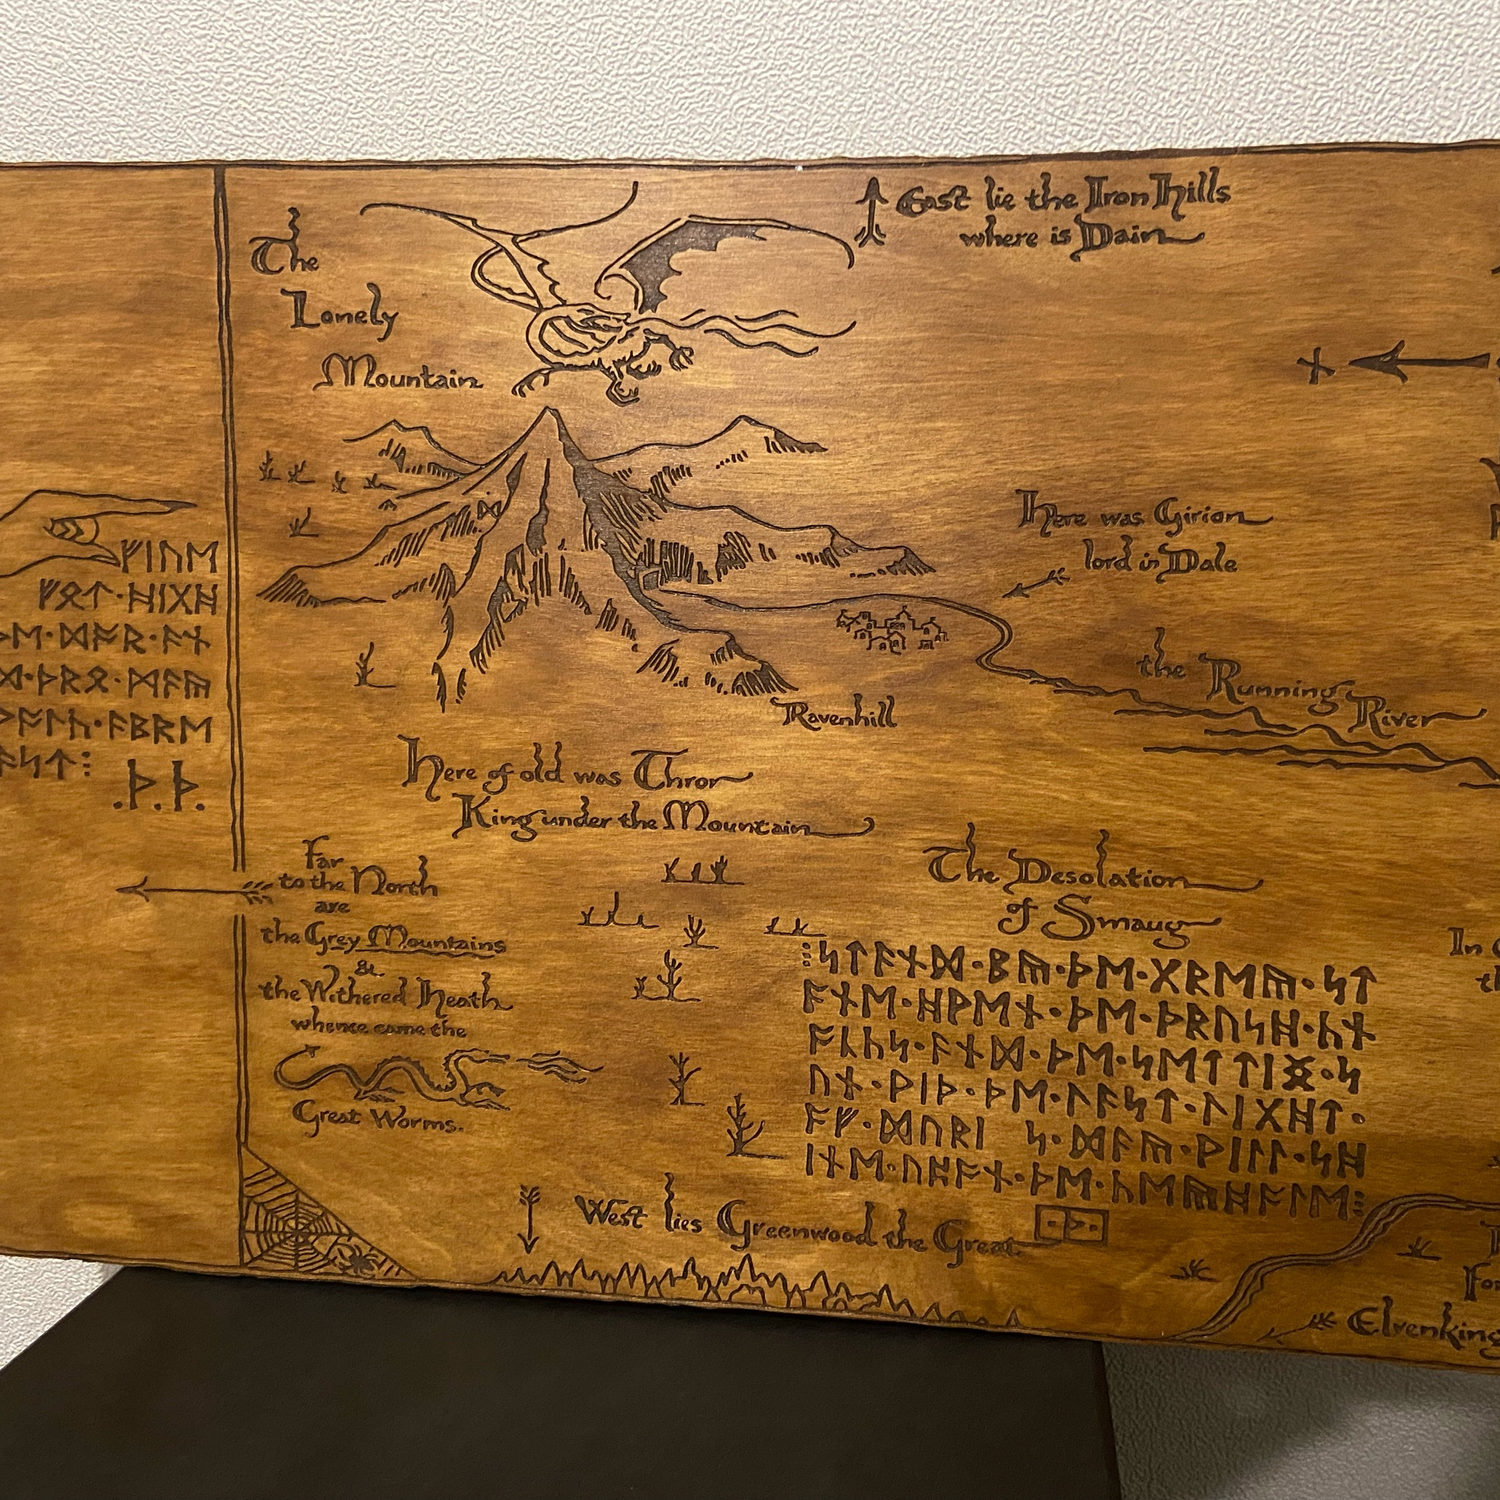 ᚠᛁᚢᛖ
ᚠᛟᛏ᛫ᚻᛁᚷᚻ
ᚦᛖ᛫ᛞᚩᚱ᛫ᚪᚾ
ᛞ᛫ᚦᚱᛟ᛫ᛗᚪᚣ
ᚹᚩᛚᚳ᛫ᚪᛒᚱᛖ
ᚪᛋᛏ⁝
.ᚦ.ᚦ.
The
Lonely
Mountain
East lie the Iron Hills
where is Dain
ᚾ
Here was Girion
lord in Dale
the Running
River
Ravenhill
Here of old was Thror
King under the Mountain
Far
to the North
are
the Grey Mountains
&
the Withered Heath
whence came the
Great Worms.
The Desolation
of Smaug
⁝ᛋᛏᚪᚾᛞ᛫ᛒᚣ᛫ᚦᛖ᛫ᚷᚱᛖᚣ᛫ᛋᛏ
ᚩᚾᛖ᛫ᚻᚹᛖᚾ᛫ᚦᛖ᛫ᚦᚱᚢᛋᚻ᛫ᚳᚾ
ᚩᚳᚳᛋ᛫ᚪᚾᛞ᛫ᚦᛖ᛫ᛋᛖᛏᛏᛁᛝ᛫ᛋ
ᚢᚾ᛫ᚹᛁᚦ᛫ᚦᛖ᛫ᛚᚪᛋᛏ᛫ᛚᛁᚷᚻᛏ᛫
ᚩᚠ᛫ᛞᚢᚱᛁ ᛋ᛫ᛞᚪᚣ᛫ᚹᛁᛚᛚ᛫ᛋᚻ
ᛁᚾᛖ᛫ᚢᛈᚩᚾ᛫ᚦᛖ᛫ᚳᛖᚣᚻᚩᛚᛖ⁝
West lies Greenwood the Great
In
Elvenking